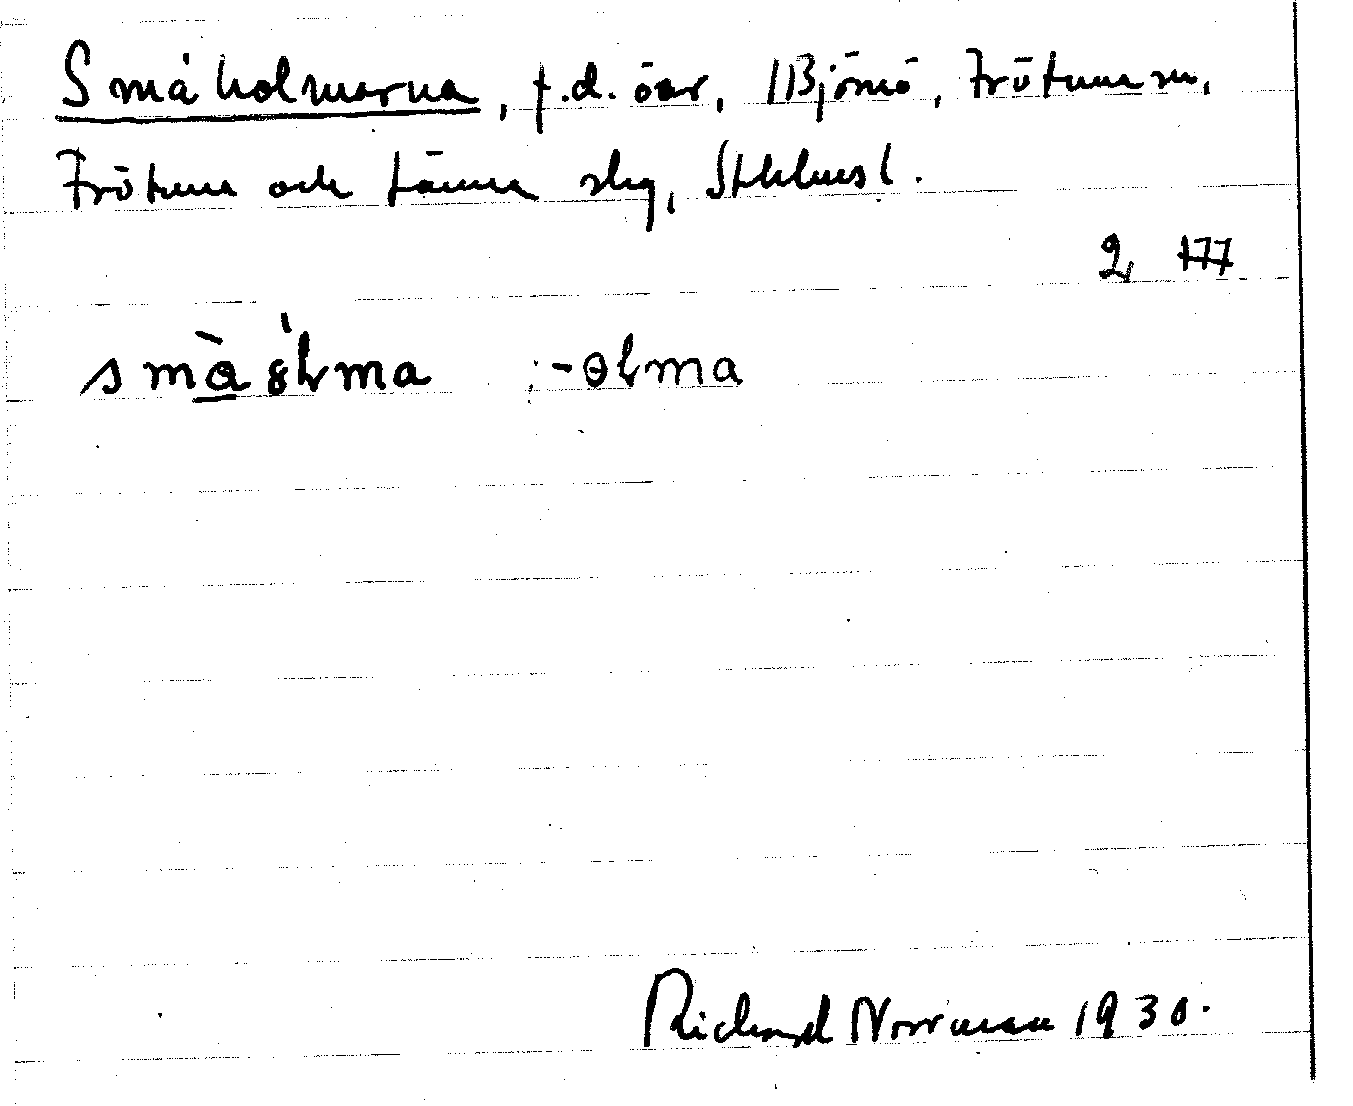 Småholmarna, f.d. öar, Björnö, Frötuna sn,
Frötuna och Länna skg, Sthlms l.
2, 177
små ölma ; -ɵlma
Richard Norrman 1930.